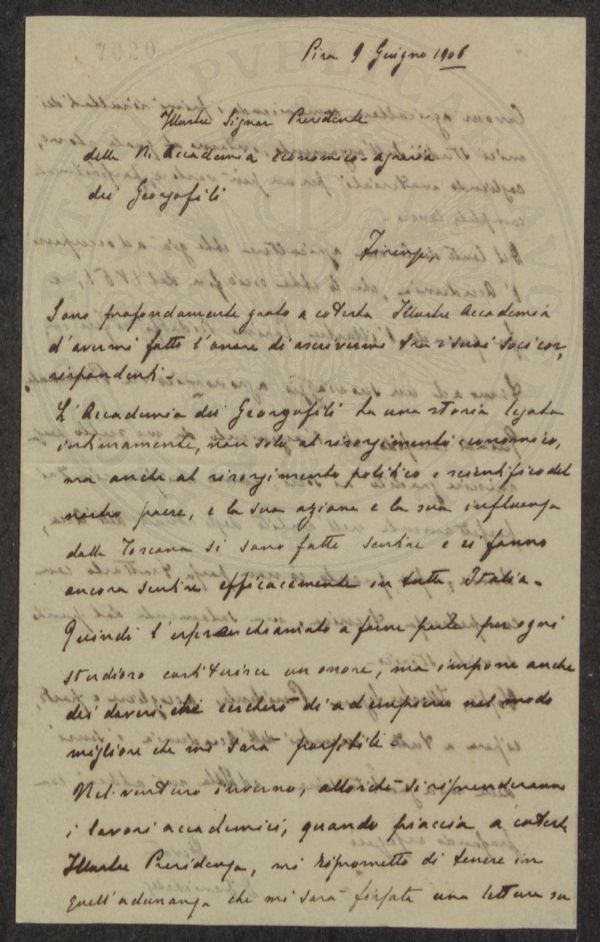 7020
Pisa 9 Giugno 1906
Illustre Signor Presidente
della R. Accademia economico-agraria
dei Georgofili
Firenze
Sono profondamente grato a cotesta Illustre Accademia
d'avermi fatto l'onore di ascrivermi tra i suoi soci cor,
rispondenti.
L'Accademia dei Georgofili ha una storia legata
intimamente, non solo al risorgimento economico,
ma anche al risorgimento politico e scientifico del
nostro paese, e la sua azione e la sua influenza
dalla Toscana si sono fatte sentire e si fanno
ancora sentire efficacemente in tutta Italia.
Quindi l'esser chiamato a farne parte per ogni
studioso costituisce un onore, ma impone anche
dei doveri che cercherò di adempiere nel modo
migliore che mi sarà possibile.
Nel venturo inverno, allorchè si riprenderanno
i lavori accademici, quando piaccia a cotesta
Illustre Presidenza, mi riprometto di tenere in
quell'adunanza che mi sarà fissata una lettura su